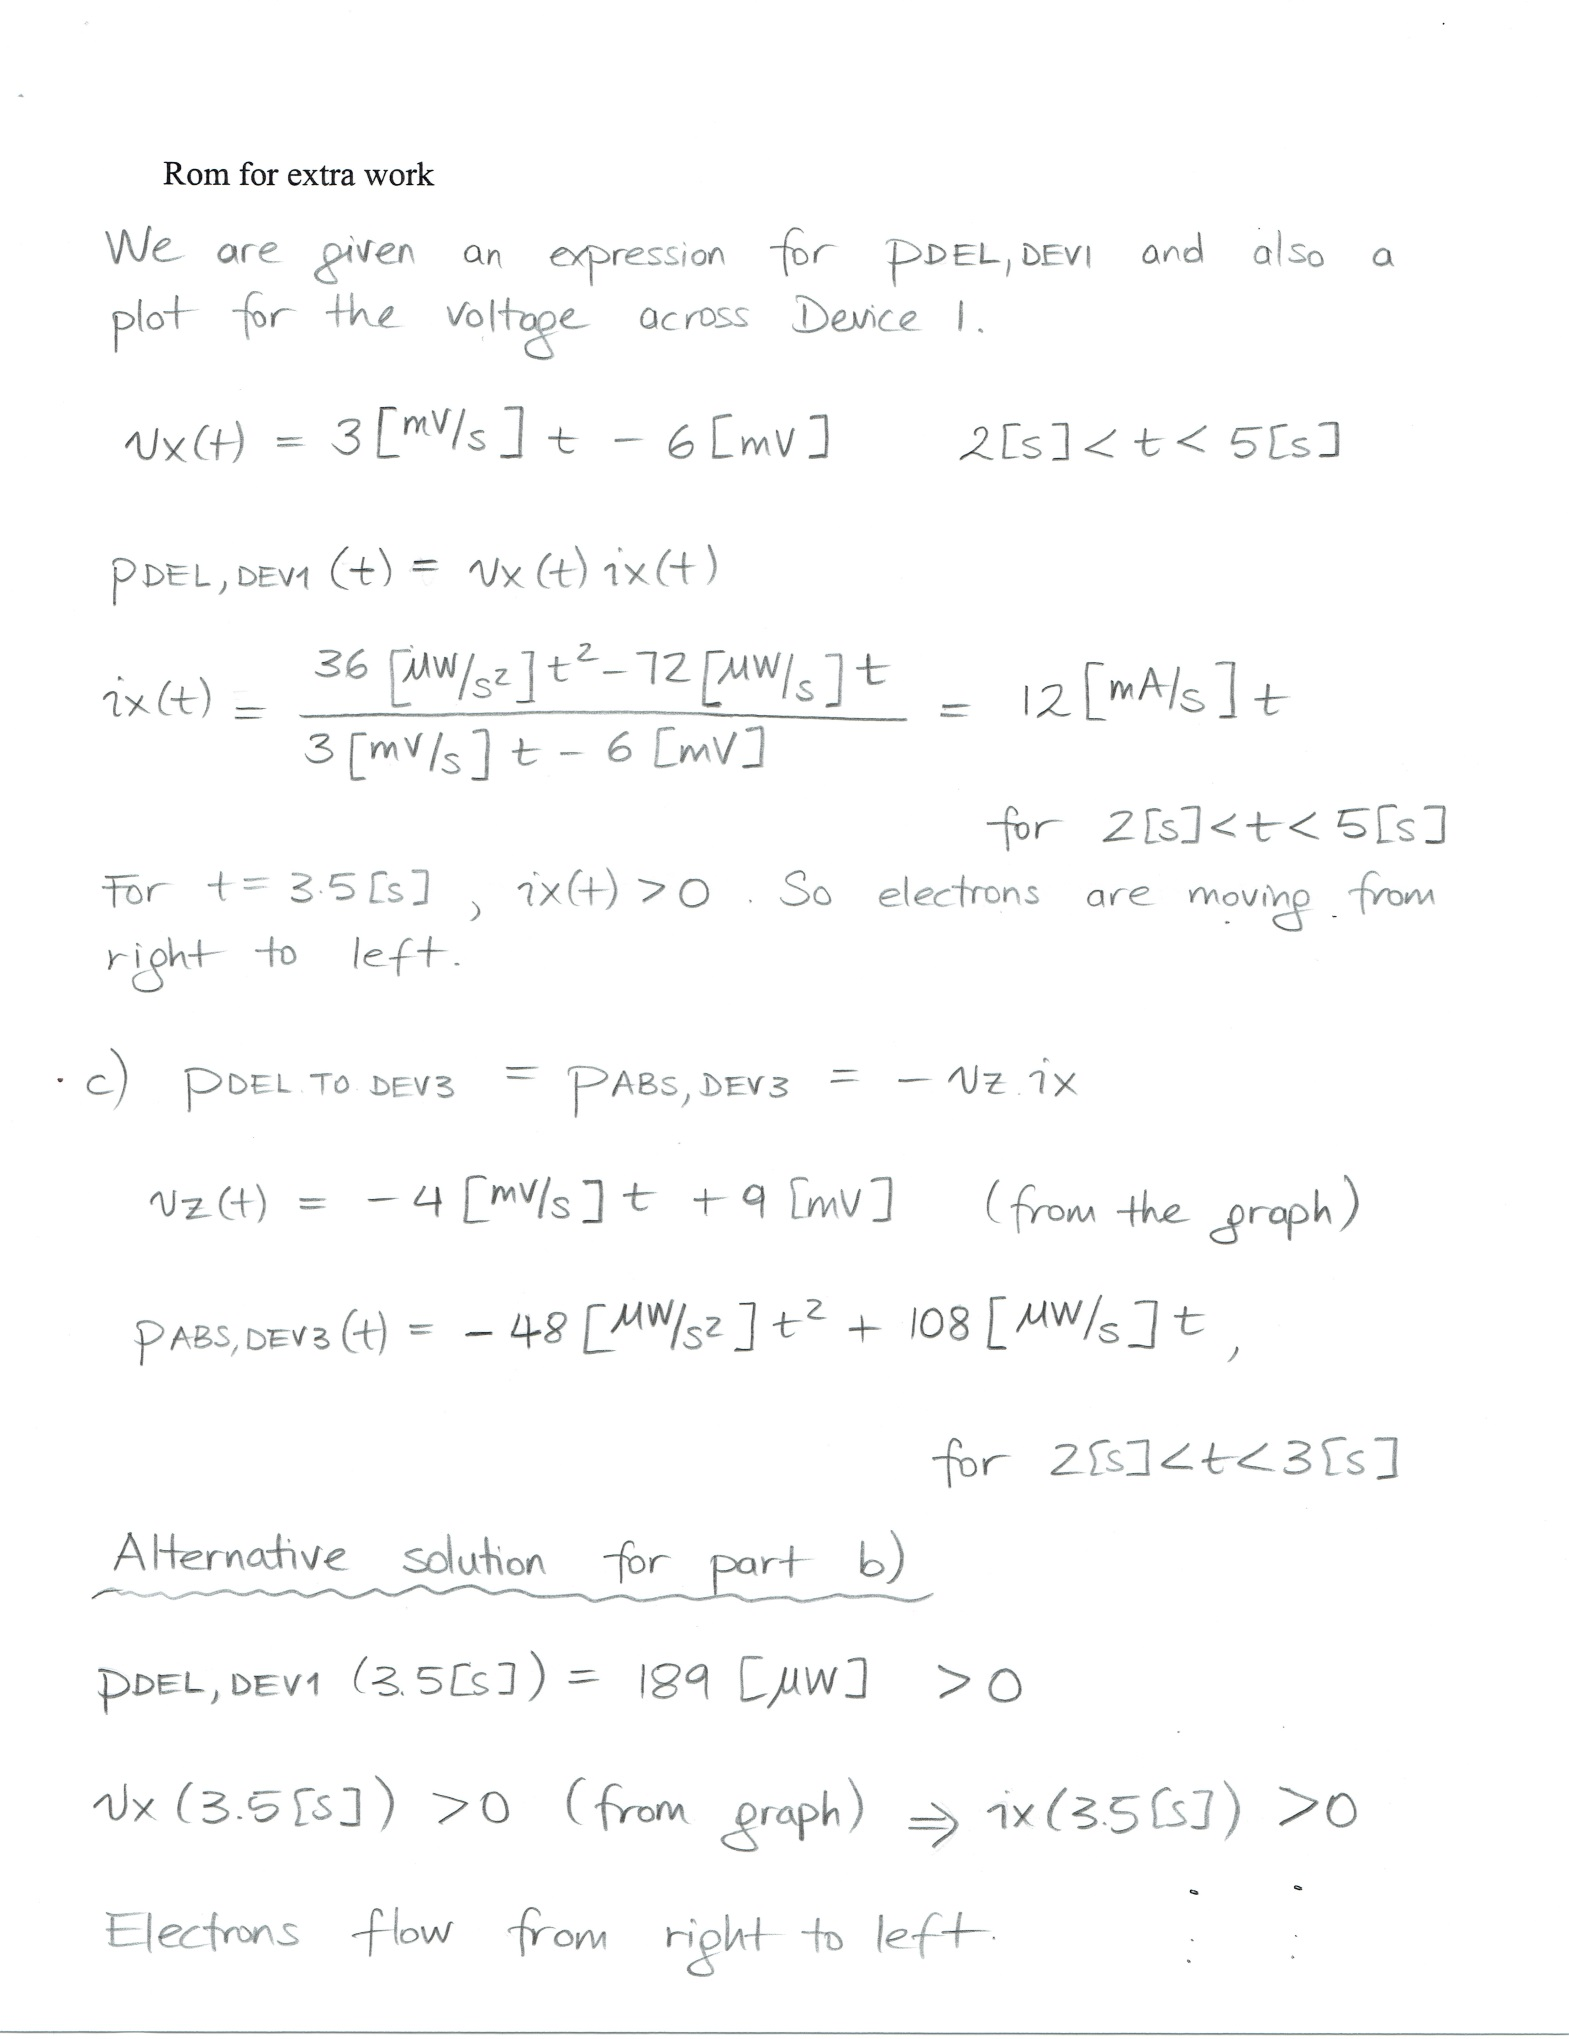 Rom for extra work
We are given an expression for PDEL, DEV1 and also a
plot for the voltage across Device 1.
vx(t) = 3 [mV/s] t - 6 [mV] 2[s] < t < 5[s]
PDEL, DEV1 (t) = vx (t) ix(t)
ix(t) = 36 [µW/s2] t² - 72 [µW/s] t / 3 [mV/s] t - 6 [mV] = 12 [mA/s] t
for 2[s] < t < 5[s]
For t = 3.5 [s] , ix(t) > 0 . So electrons are moving from
right to left.
c) PDEL TO DEV3 = PABS, DEV3 = - vz . ix
vz (t) = - 4 [mV/s] t + 9 [mV] (from the graph)
PABS, DEV3 (t) = - 48 [µW/s2] t² + 108 [µW/s] t ,
for 2[s] < t < 3[s]
Alternative solution for part b)
PDEL, DEV1 (3.5[s]) = 189 [µW] > 0
vx (3.5[s]) > 0 (from graph) ⇒ ix (3.5[s]) > 0
Electrons flow from right to left.